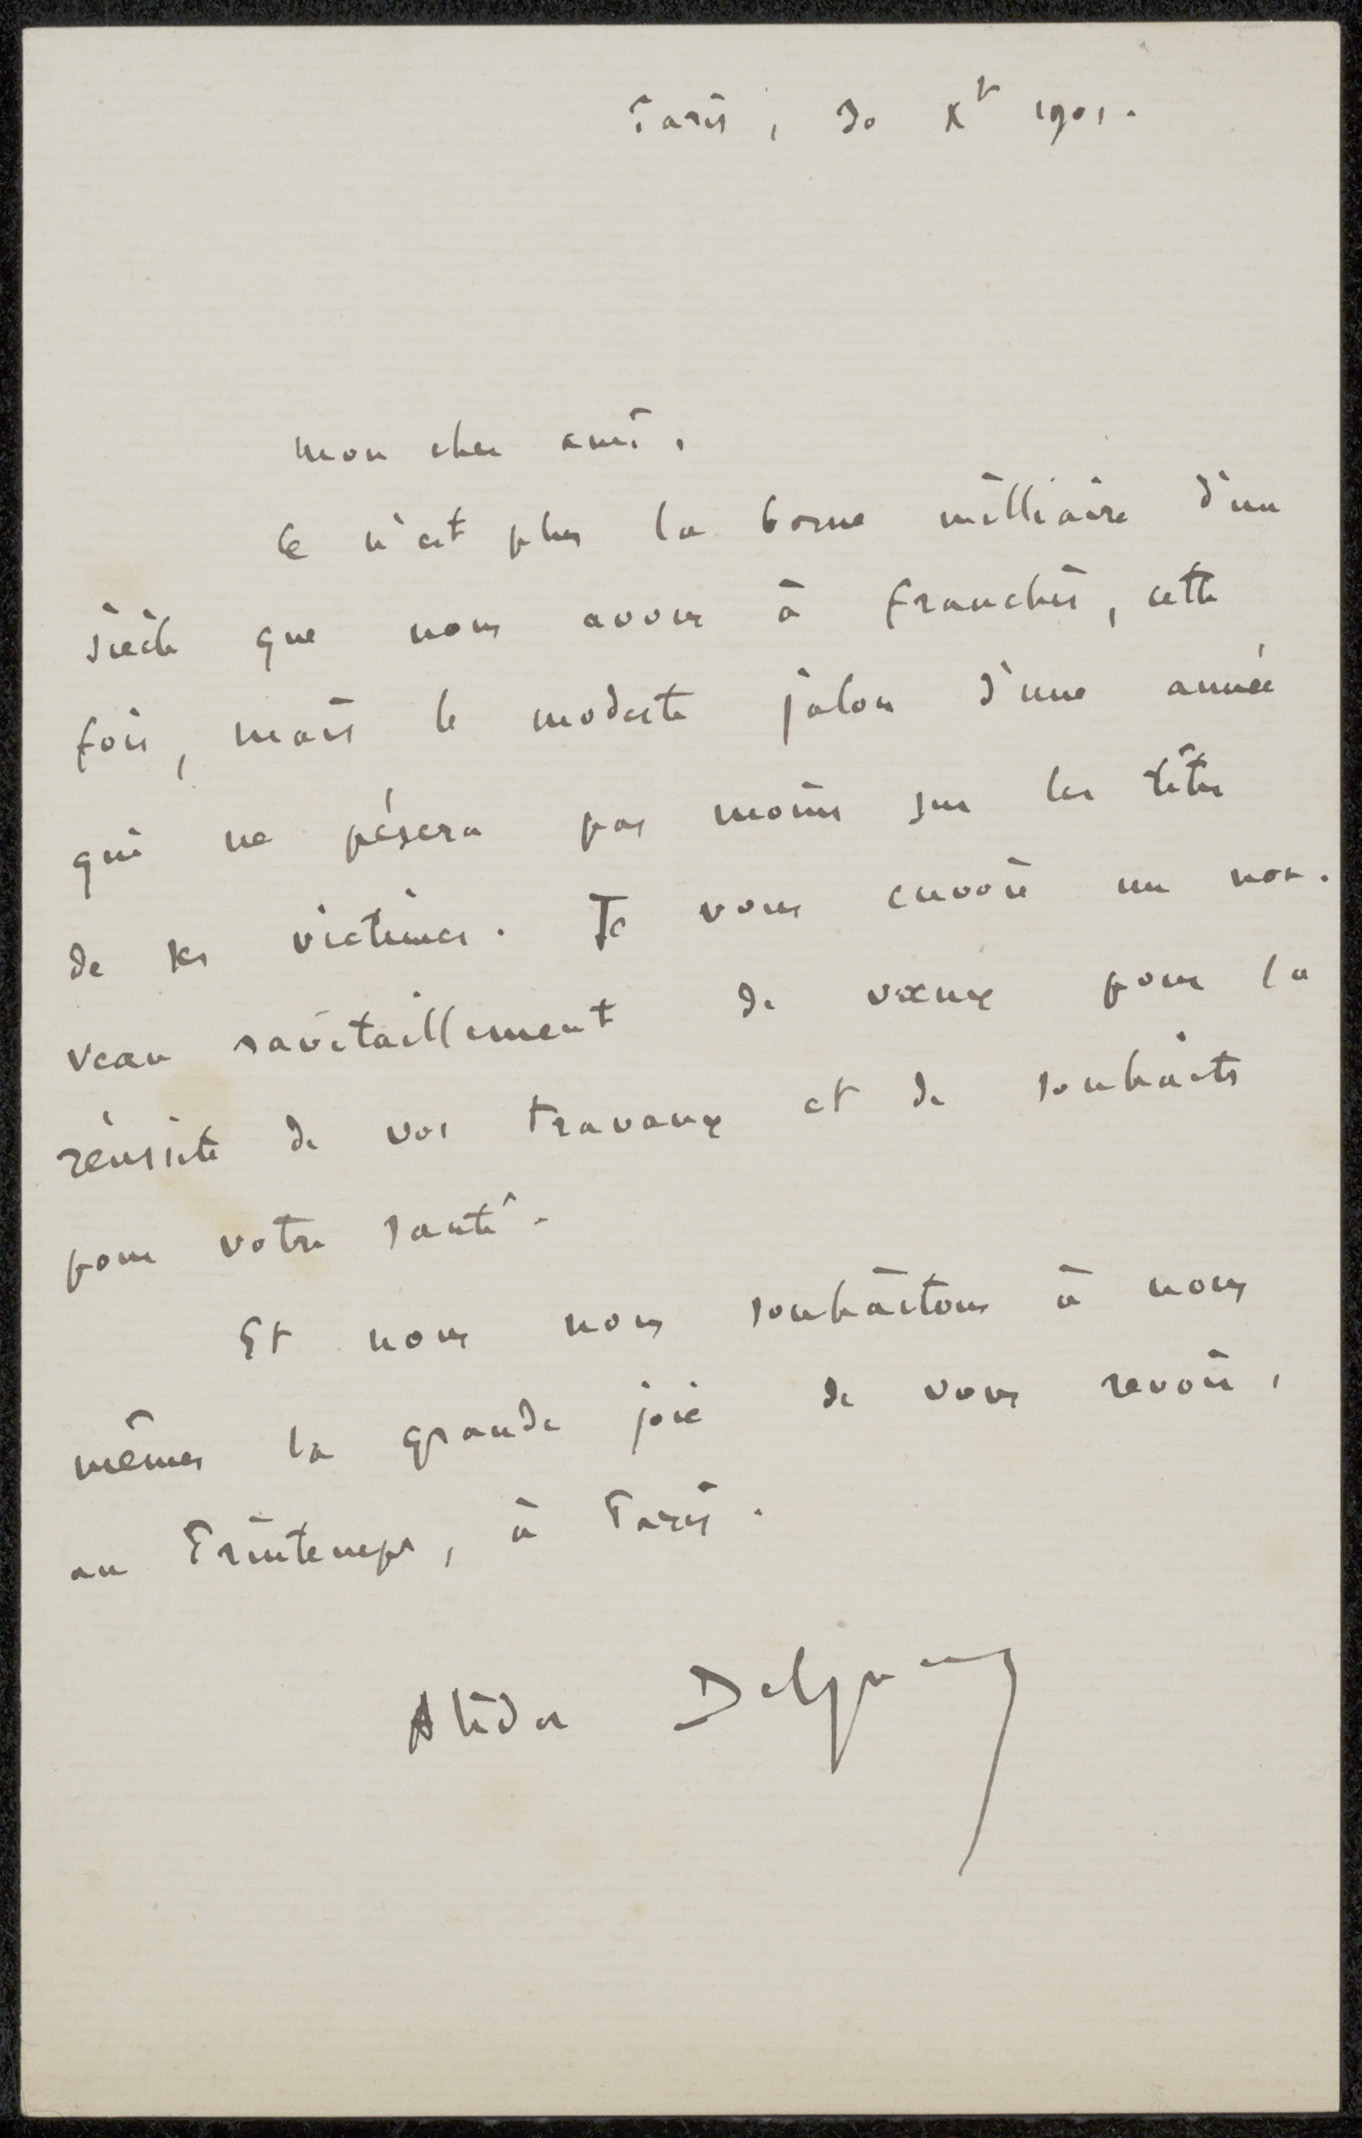 Paris, 30 Xbr 1901.
Mon cher ami,
Ce n'est plus la borne milliaire d'un
siècle que nous avons à franchir, cette
fois, mais le modeste jalon d'une année
qui ne pésera pas moins sur les têtes
de ses victimes. Je vous envoie un nou-
veau ravitaillement de vœux pour la
réussite de vos travaux et de souhaits
pour votre santé.
Et nous nous souhaitons à nous
mêmes la grande joie de vous revoir,
au Printemps, à Paris.